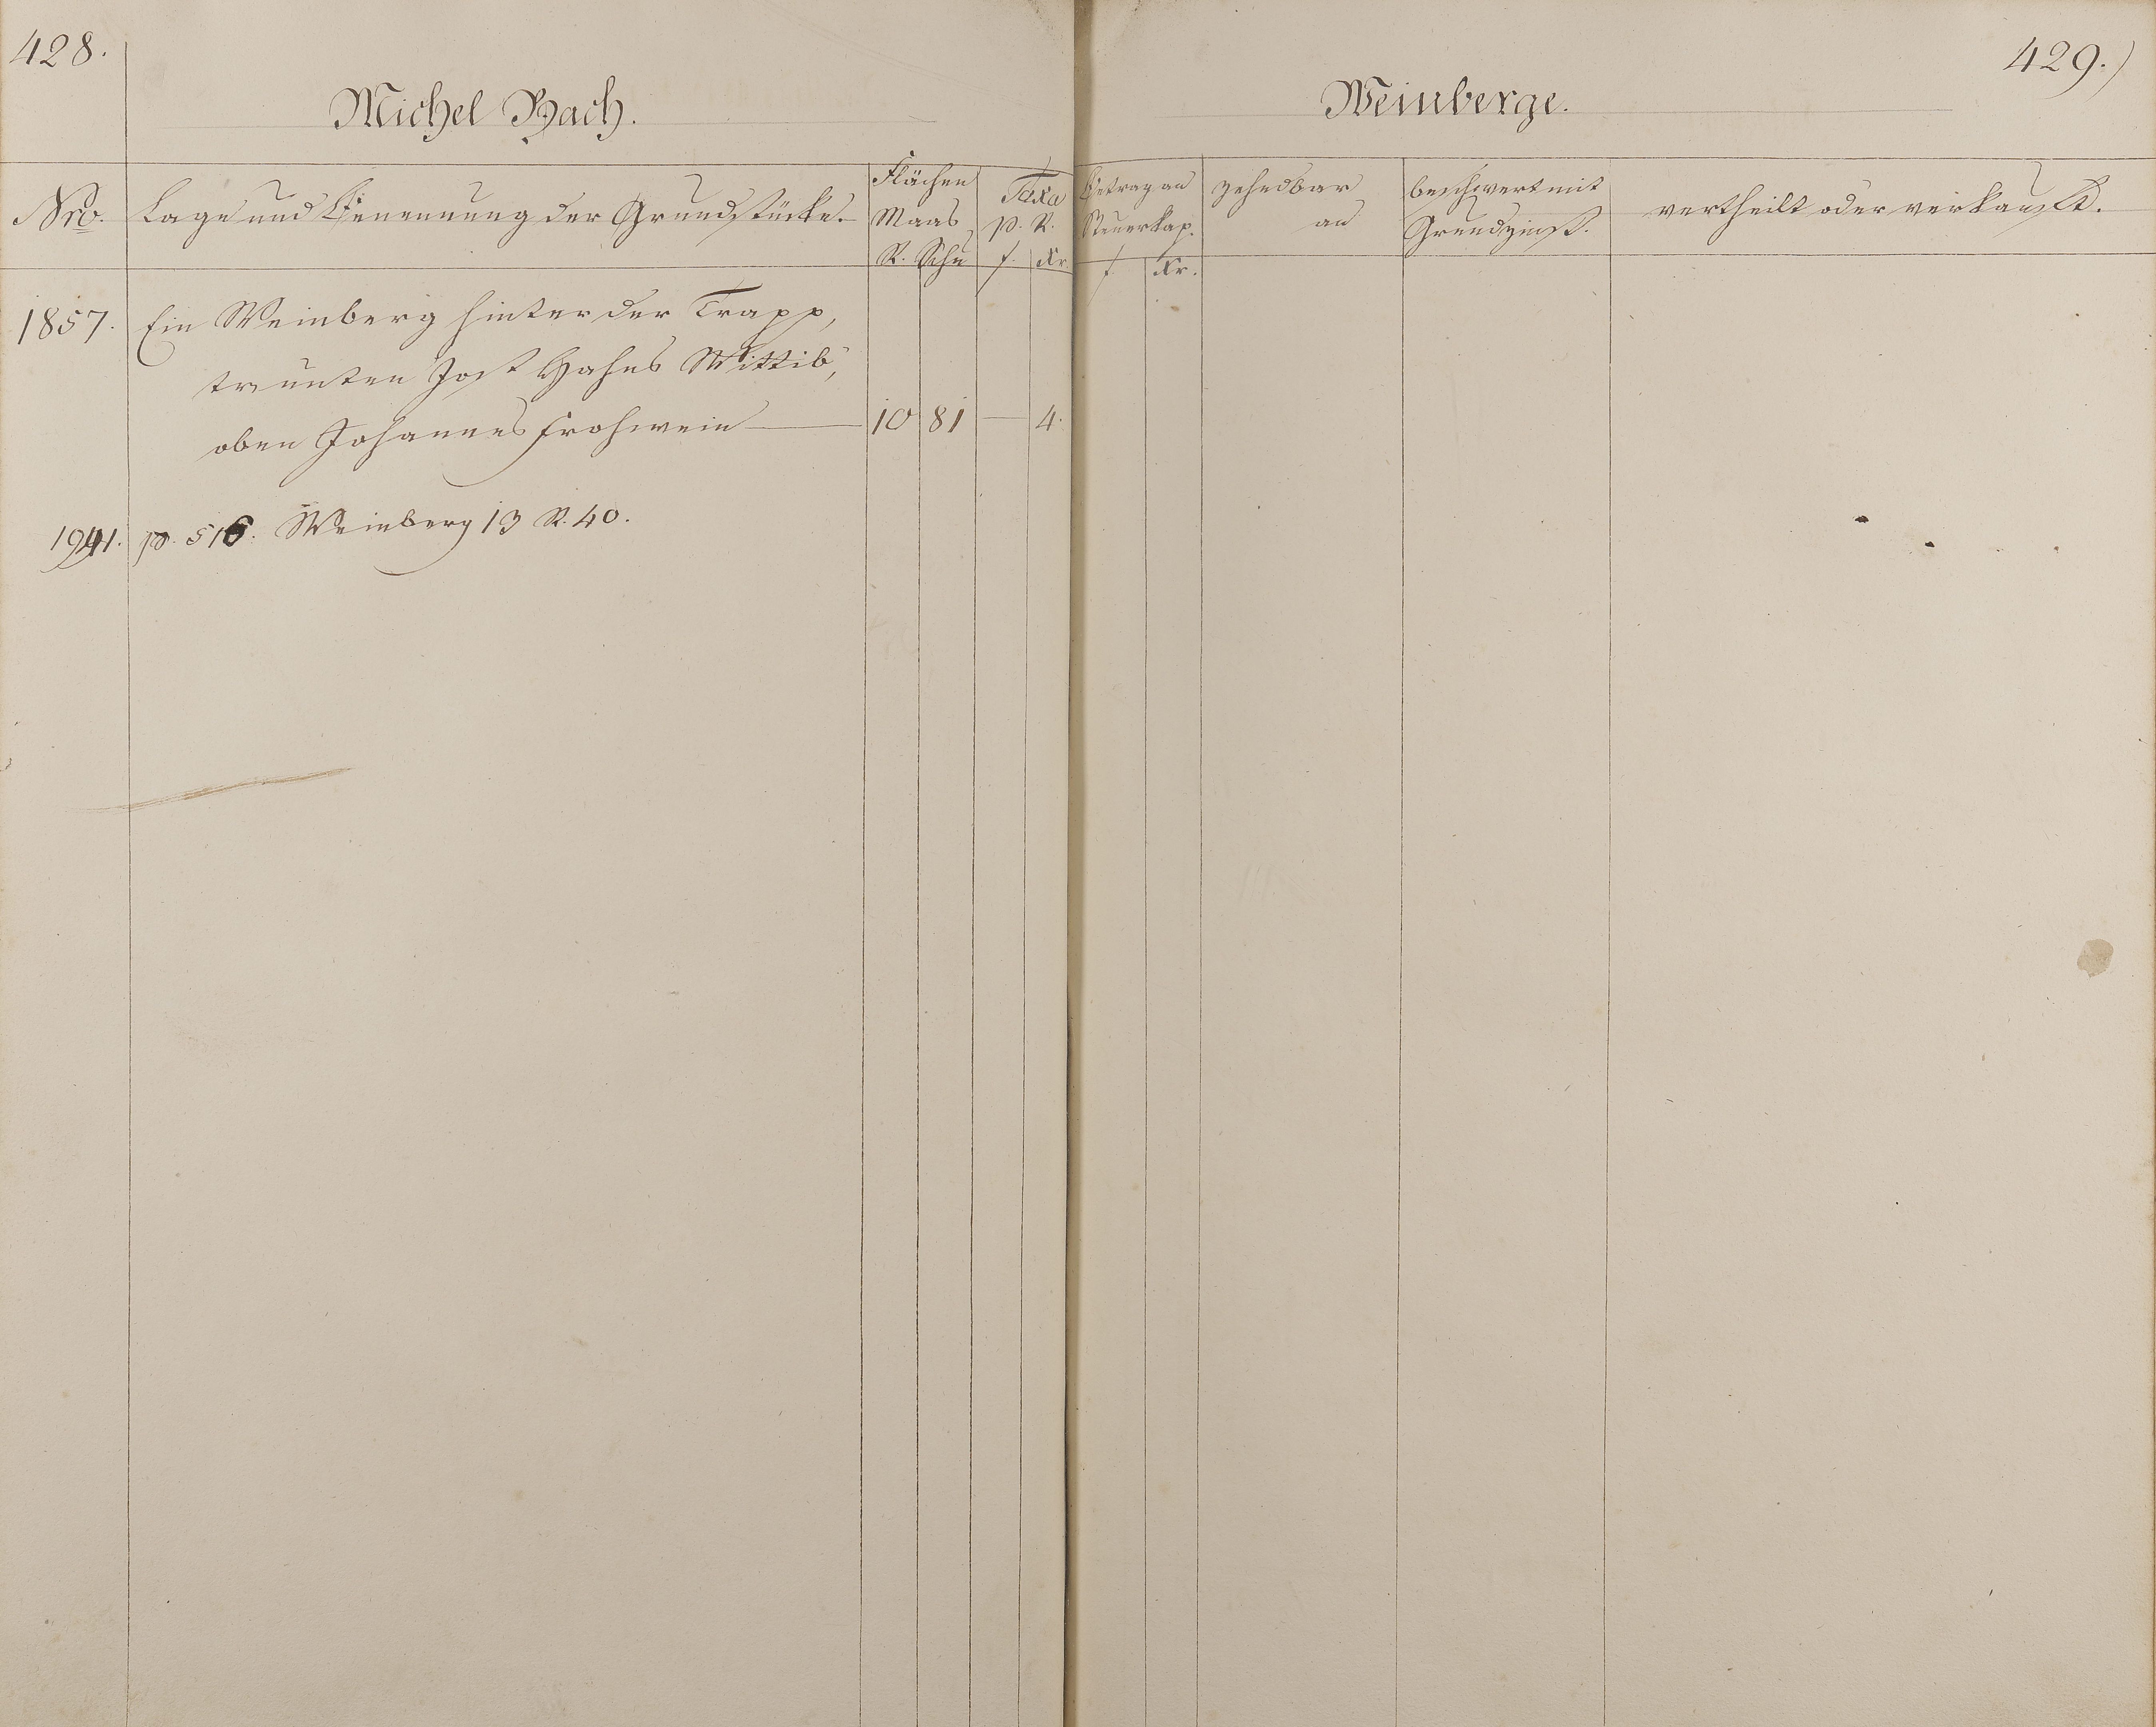 428.
Michel Bach.
Nro.
Lage und Benennung der Grundstücke.
Flächen
Maas
R. Schu
Taxa
p. R.
f. Kr.
1857. Ein Weinberg hinter der Trapp,
unten Jost Hahns Wittib,
oben Johannes Frohwein — 10 81 — 4.
1941. p. 516. Weinberg 13 R. 40.
429.)
Weinberge.
Betrag an
Steuerkap.
f. Kr.
zehndbar
an
beschwert mit
Grundzinß.
vertheilt oder verkauft.